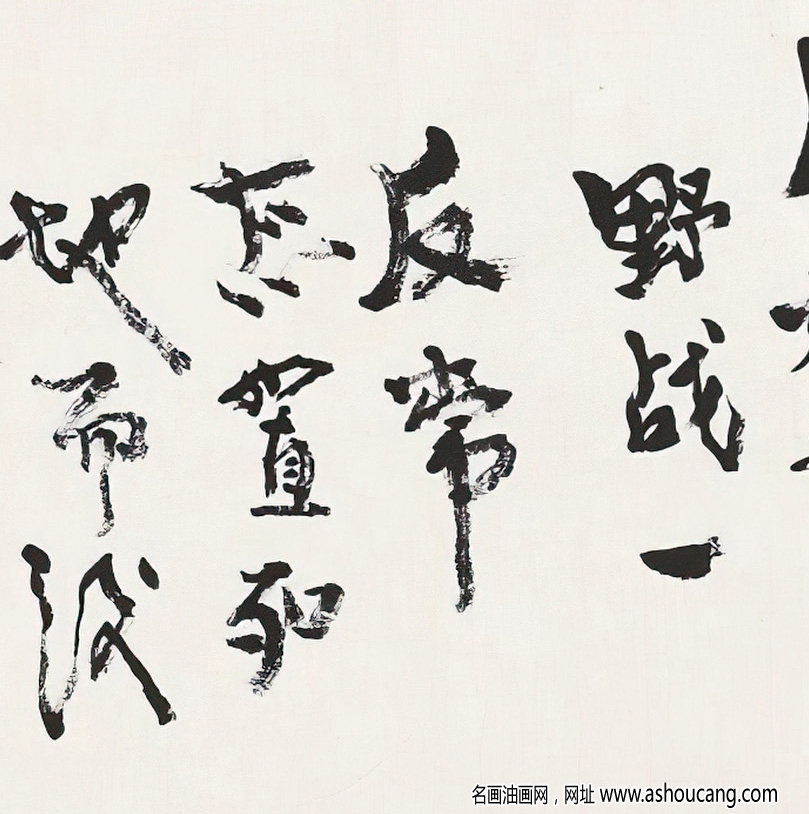 野战一
反常态
置死
地而後
名画油画网，网址 www.ashoucang.com